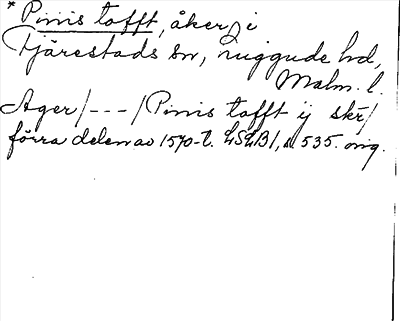 * Pinis tofft, åker, i
Tjärestads sn, Luggude hd,
Malm. l.
Ager/---/Pinis tofft ij skr/
förra delen av 1570-t. LSLB1, s. 535. orig.